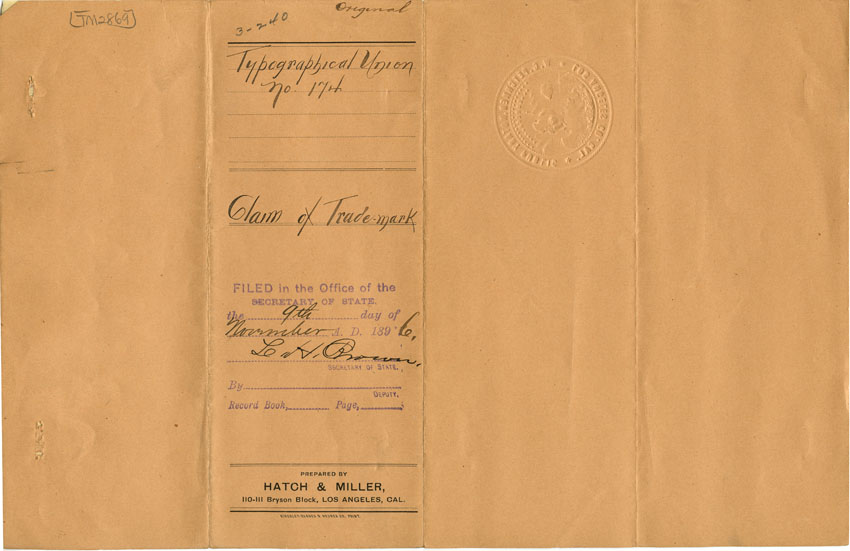 [TM2869]
3-240
Original
Typographical Union
No. 174
Claim of Trade-mark
FILED in the Office of the
SECRETARY OF STATE.
the 9th day of
November A. D. 1896.
L. H. Brown,
SECRETARY OF STATE.
By
DEPUTY.
Record Book, Page,
PREPARED BY
HATCH & MILLER,
110-111 Bryson Block, LOS ANGELES, CAL.